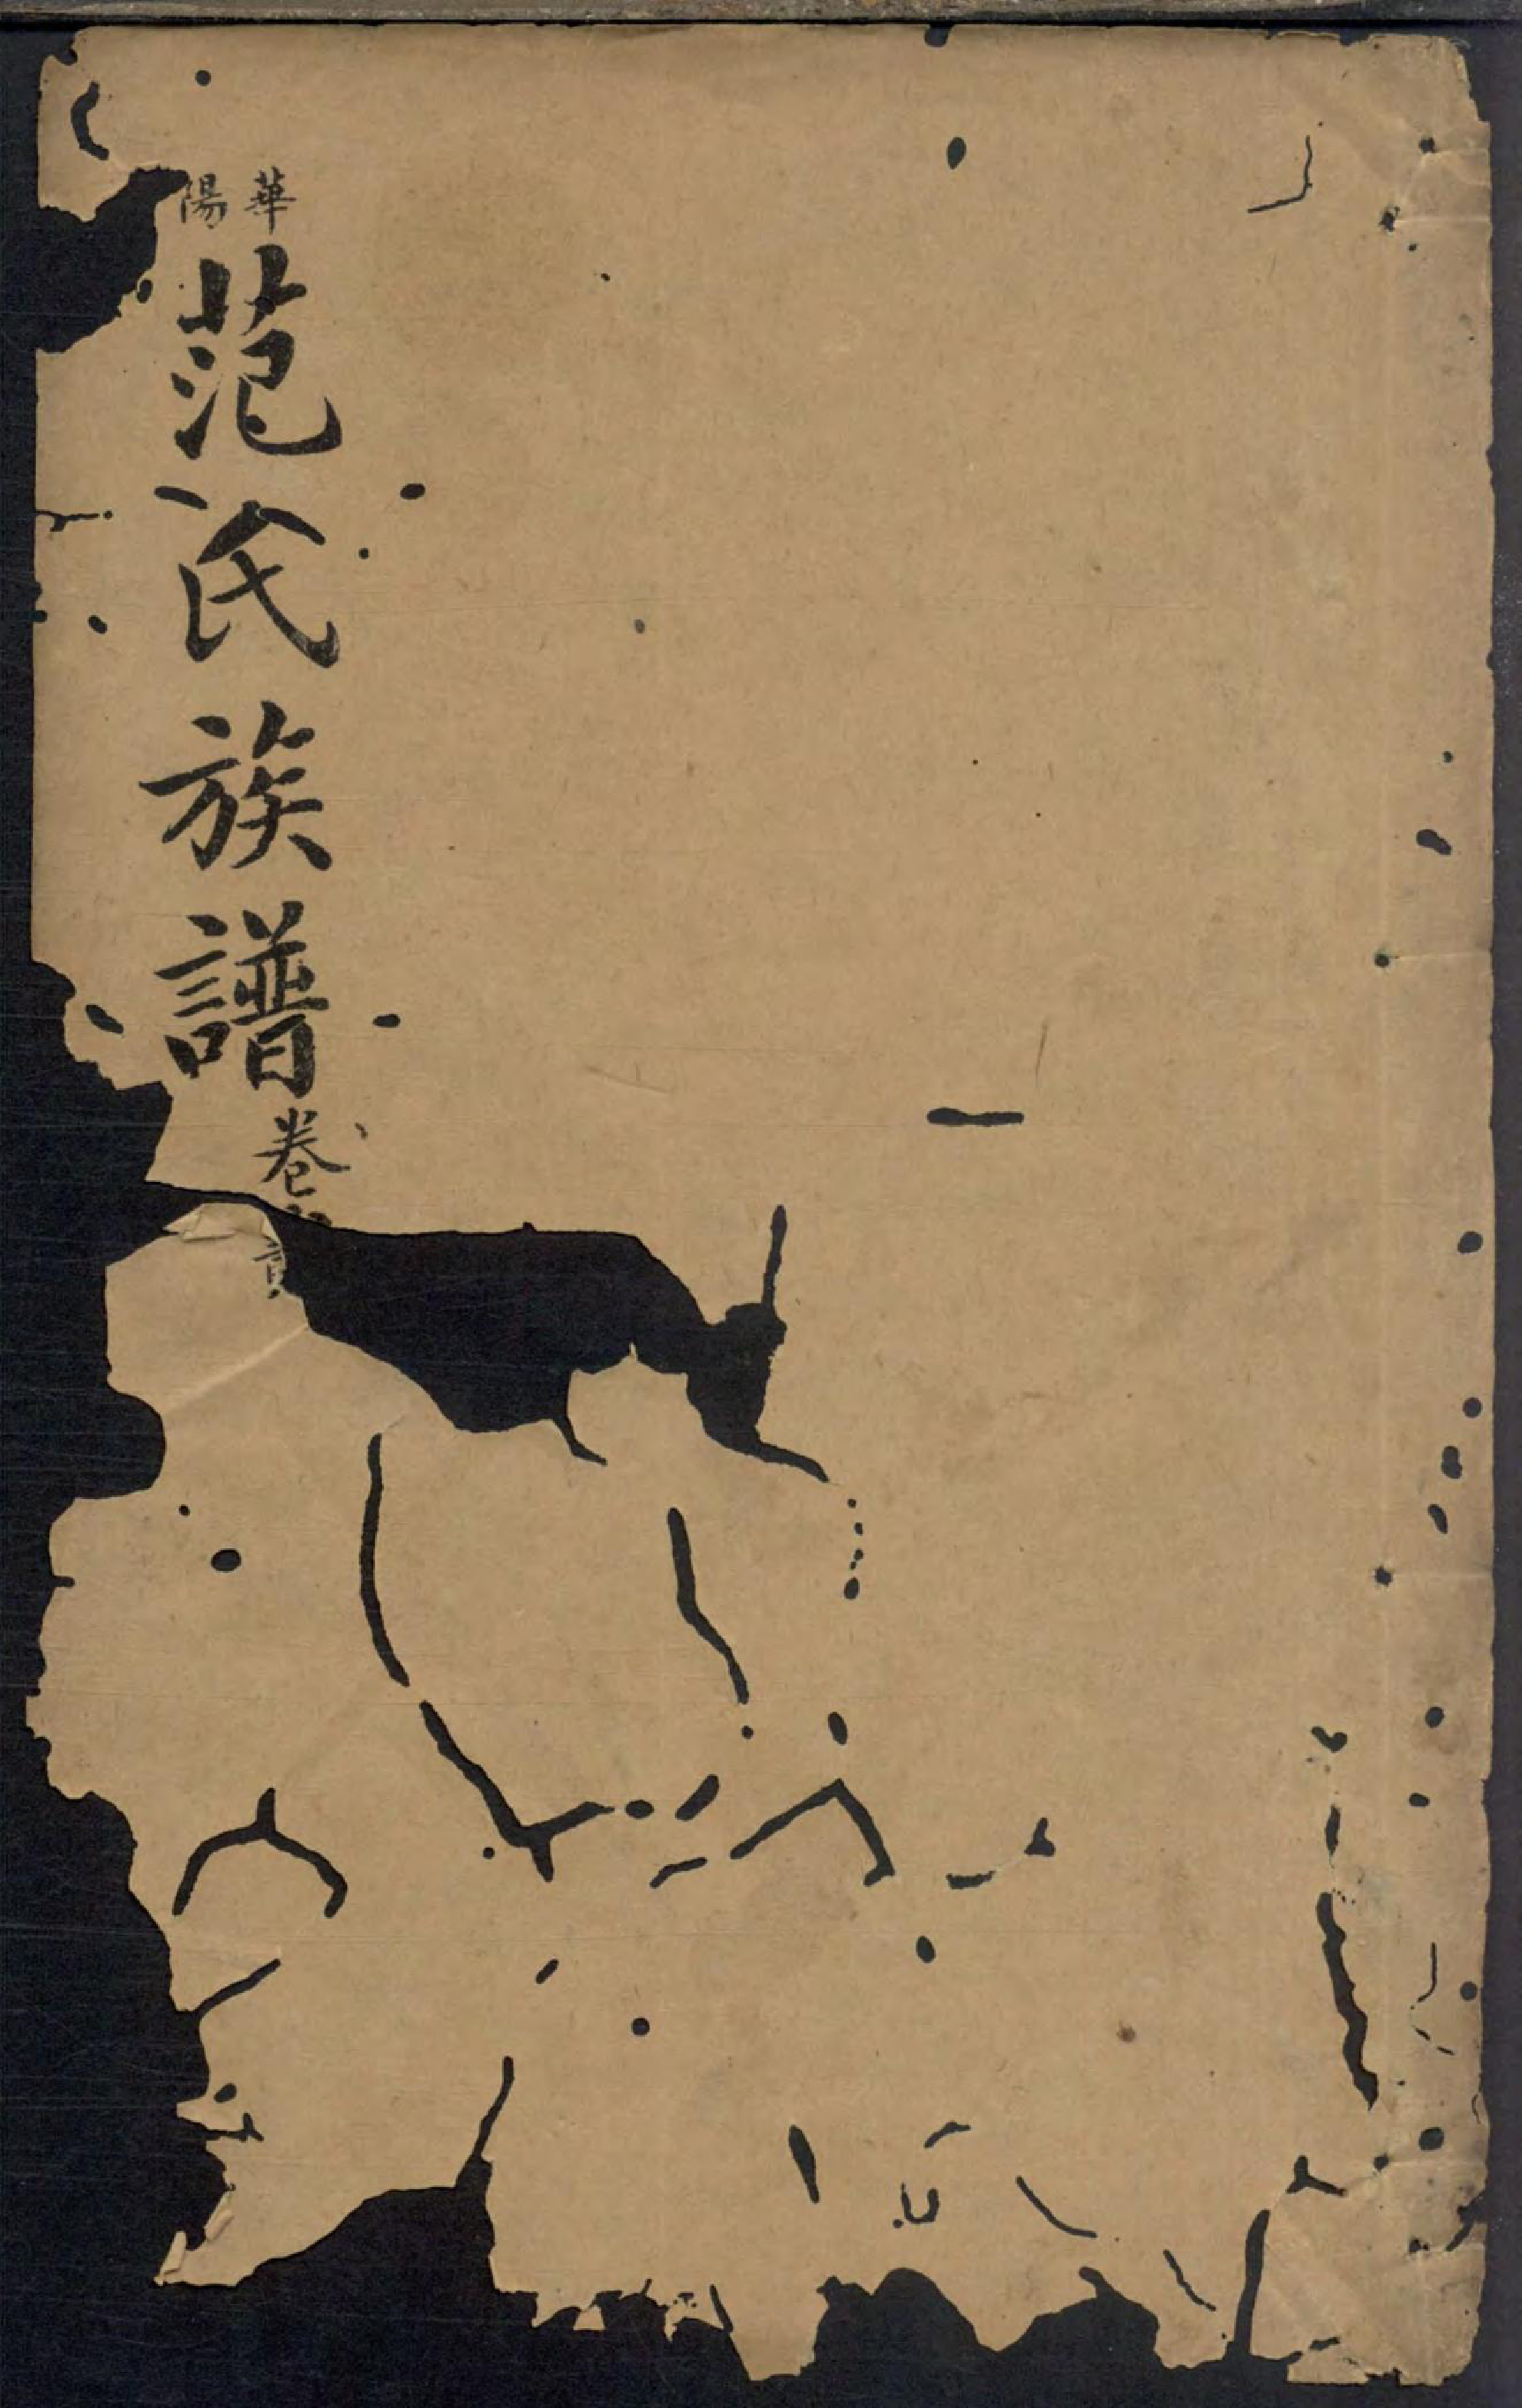 華陽
范氏族譜
卷